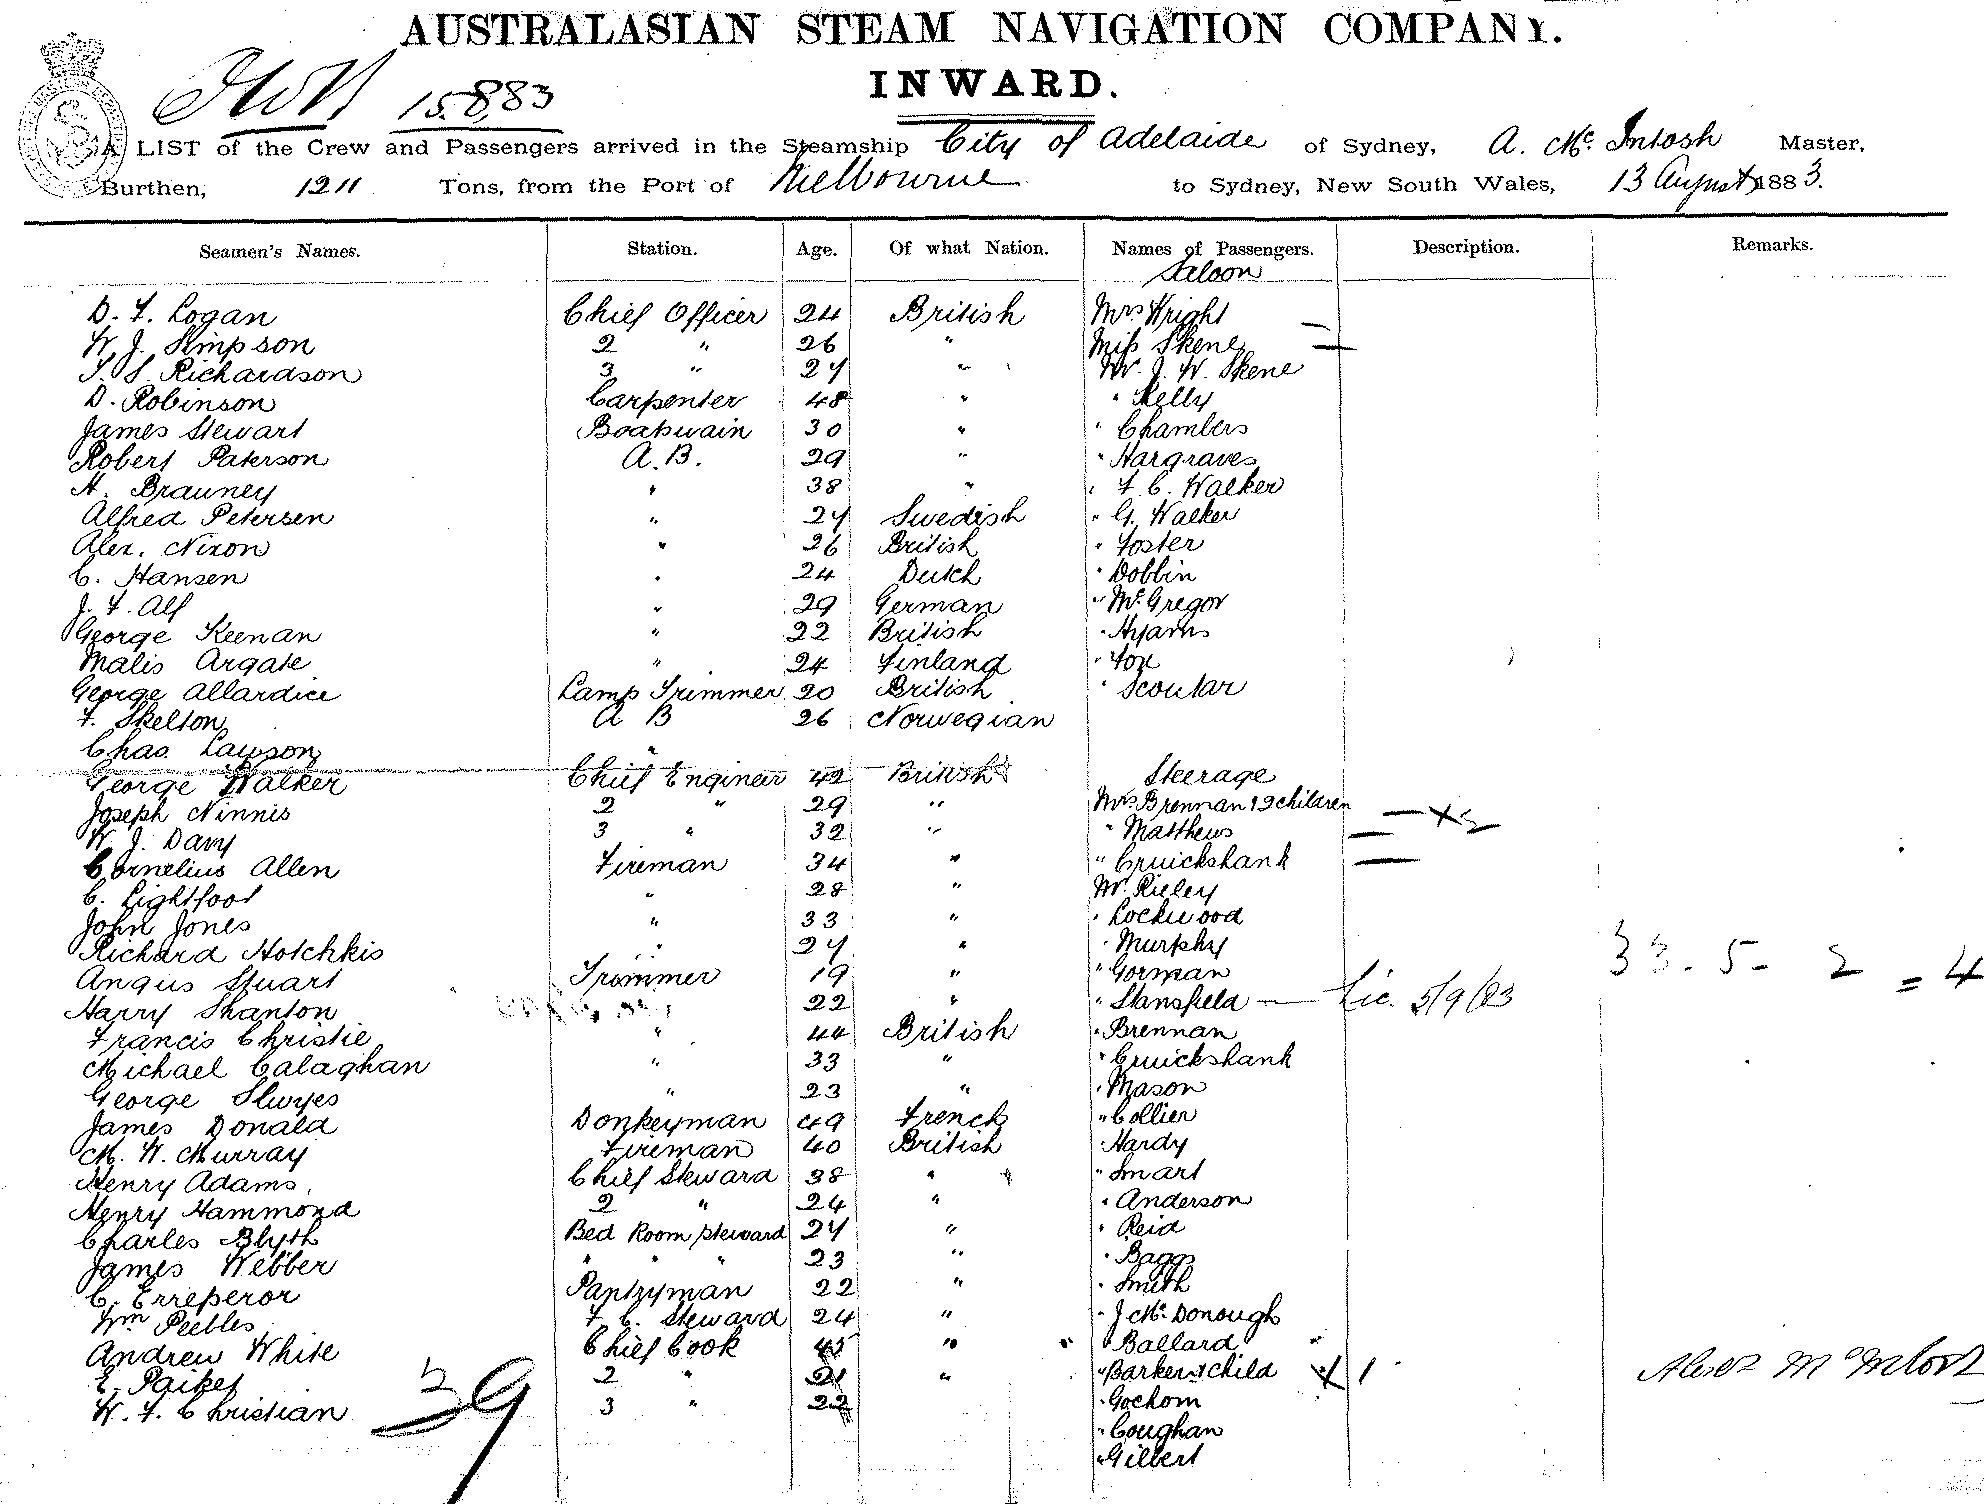 AUSTRALASIAN STEAM NAVIGATION COMPANY.
INWARD.
15.883
A LIST of the Crew and Passengers arrived in the Steamship City of Adelaide of Sydney, A. McIntosh Master,
Burthen, 1211 Tons, from the Port of Melbourne to Sydney, New South Wales, 13 August 1883.
Seamen's Names. Station. Age. Of what Nation. Names of Passengers. Description. Remarks.
Saloon
D. F. Logan Chief Officer 24 British Mrs Wright
W. J. Simpson 2 " 26 " Miss Skene
T. S. Richardson 3 " 27 " Mr. J. W. Skene
D. Robinson Carpenter 48 " " Kelly
James Stewart Boatswain 30 " " Chambers
Robert Paterson A.B. 29 " " Hargraves
H. Brauney " 38 " " F. C. Walker
Alfred Petersen " 27 Swedish " G. Walker
Alex. Nixon " 26 British " Foster
C. Hansen " 24 Dutch " Dobbin
J. F. Alf " 29 German " McGregor
George Keenan " 22 British " Hyams
Malis Argate " 24 Finland " Fox
George Allardice Lamp Trimmer 20 British " Scoular
F. Skelton A B 26 Norwegian
Chas. Lawson "
George Walker Chief Engineer 42 British Steerage
Joseph Ninnis 2 " 29 " Mrs. Brennan & 2 children
W. J. Davy 3 " 32 " " Matthews
Cornelius Allen Fireman 34 " " Cruickshank
C. Lightfoot " 28 " Mr. Rieley
John Jones " 33 " " Lockwood
Richard Hotchkis " 27 " " Murphy
Angus Stuart Trimmer 19 " " Gorman 33 - 5 - 2 = 4
Harry Shanton " 22 " " Stansfield — Lic. 5/9/83
Francis Christie " 44 British " Brennan
Michael Calaghan " 33 " " Cruickshank
George Slwyes " 23 " " Mason
James Donald Donkeyman 49 French " Collier
M. W. Murray Fireman 40 British " Hardy
Henry Adams Chief Steward 38 " " Smart
Henry Hammond 2 " 24 " " Anderson
Charles Blyth Bed Room Steward 27 " " Reid
James Webber " " " 23 " " Baggs
C. Erreperor Pantryman 22 " " Smith
Wm Peebles F. C. Steward 24 " " J McDonough
Andrew White Chief Cook 45 " " Ballard
E. Paiket 2 " 21 " " Barker & child + 1
W. F. Christian 3 " 22 " Gochom
39
" Coughan
" Gilbert